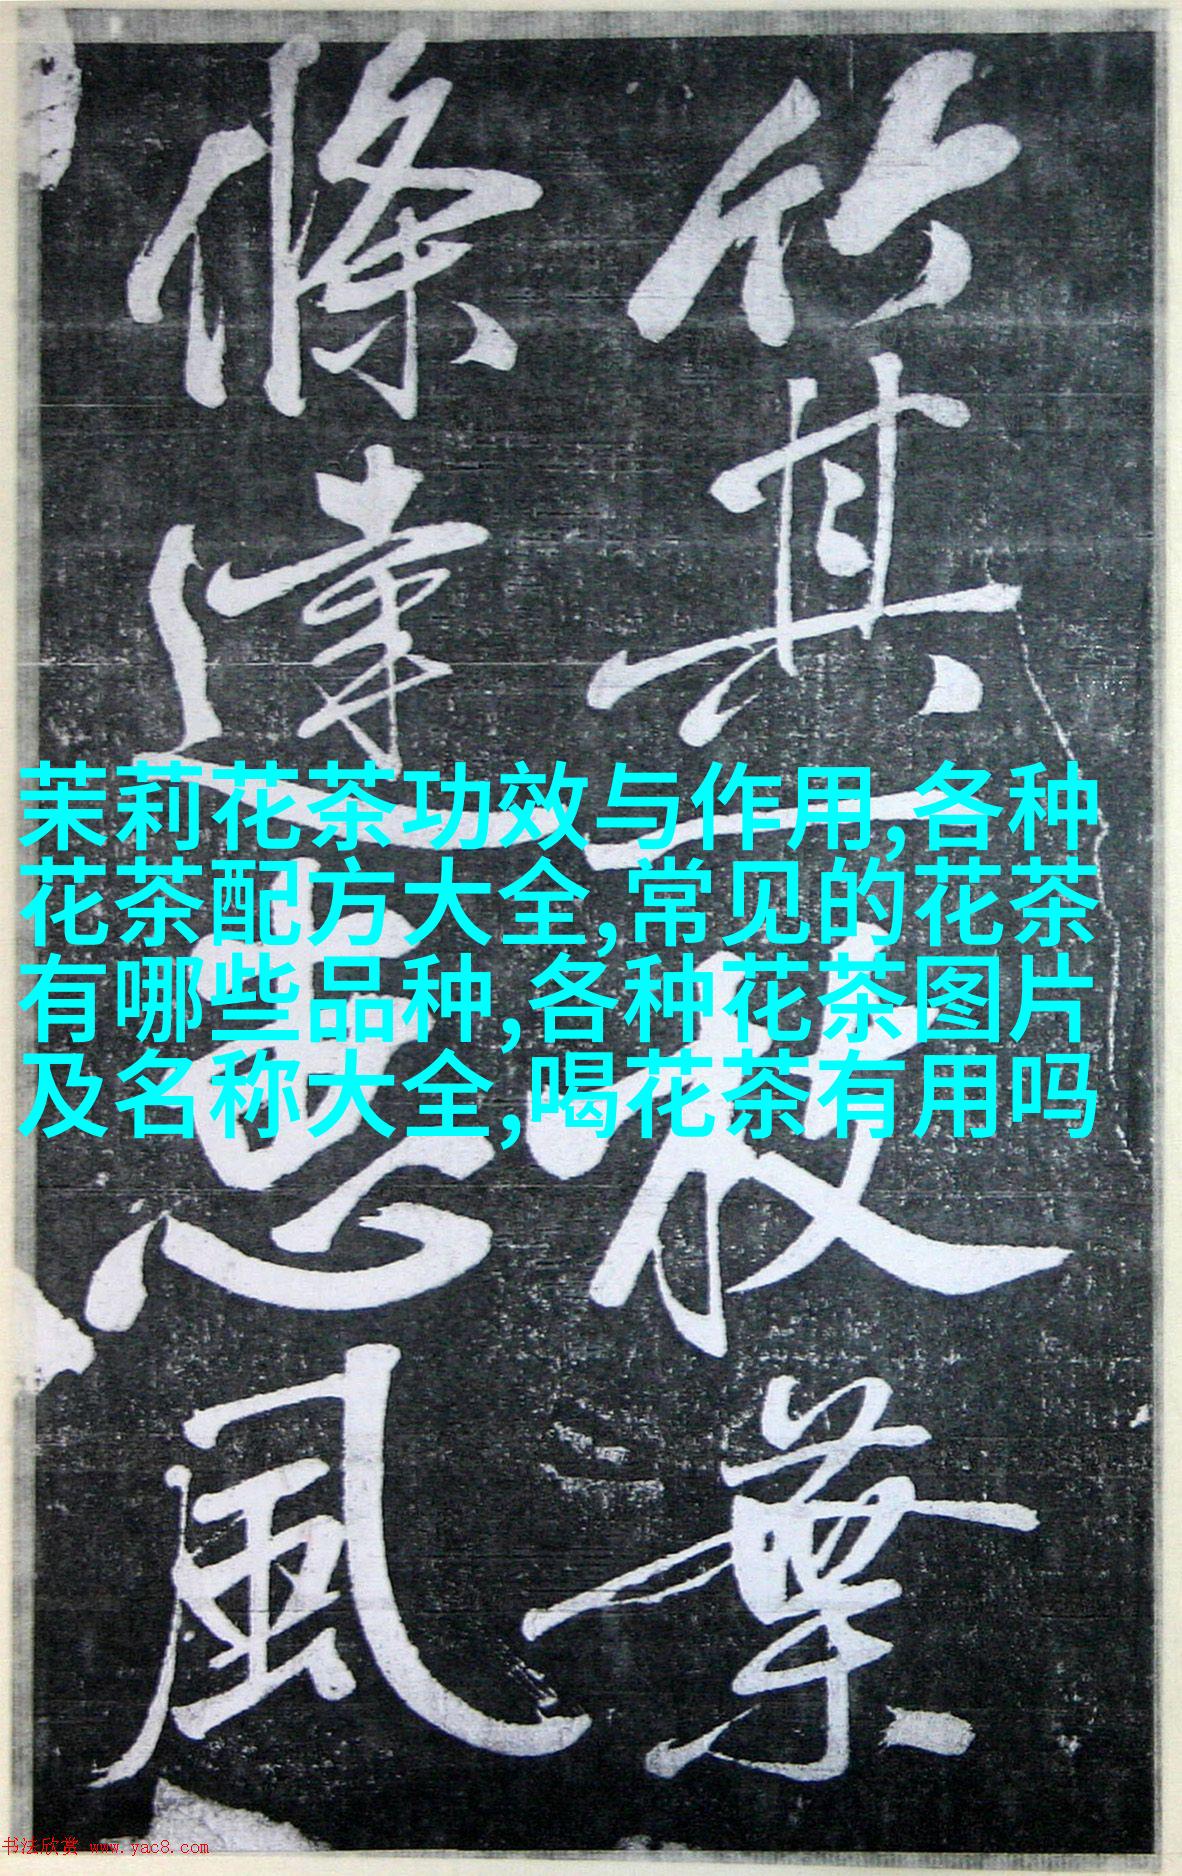 竹其枝葉
條達惠風
茉莉花茶功效与作用,各种
花茶配方大全,常见的花茶
有哪些品种,各种花茶图片
及名称大全,喝花茶有用吗
书法欣赏 www.yac8.com